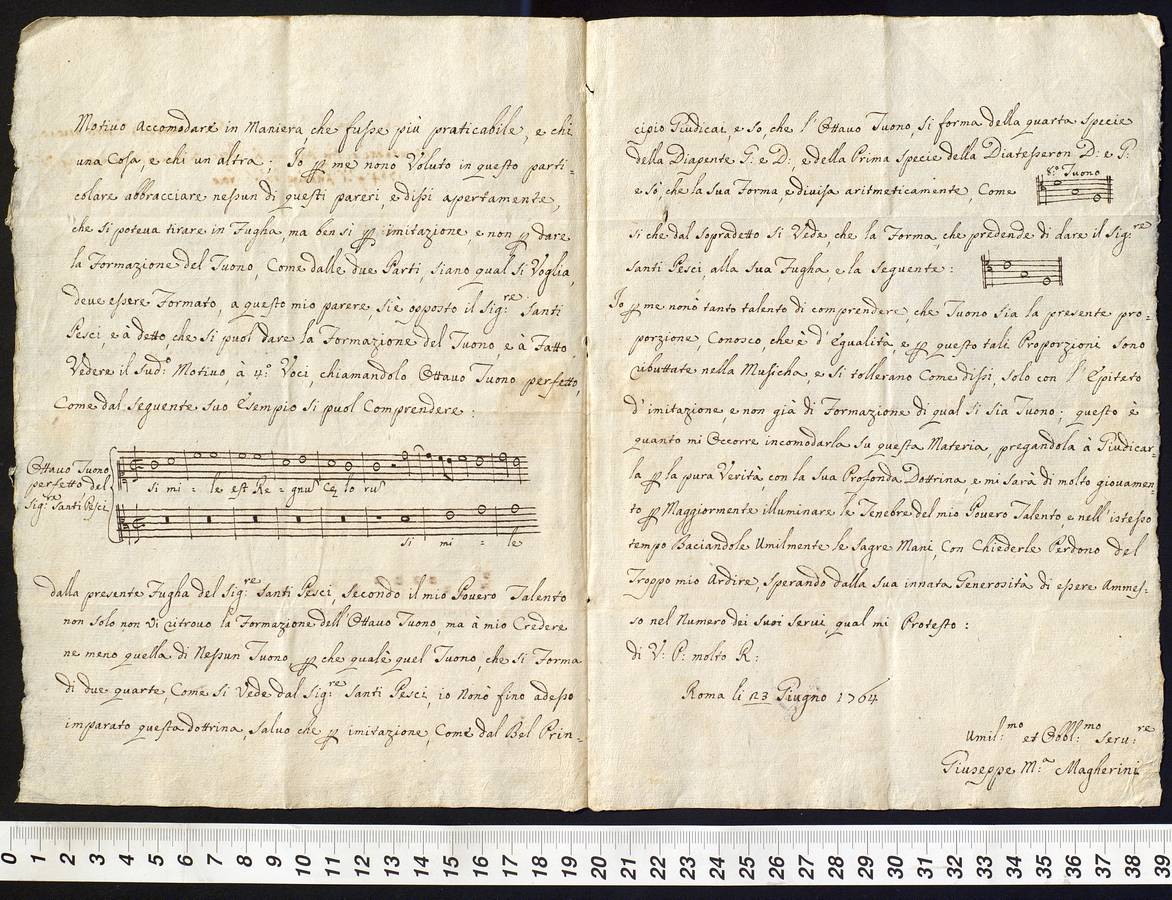 Motivo accomodare in Maniera che fusse più praticabile, e chi
una Cosa, e chi un altra; Io p me nonò Voluto in questo parti=
colare abbracciare nessun di questi pareri, e dissi apertamente,
che si poteva tirare in Fugha, ma ben sì p imitazione, e non p dare
la Formazione del Tuono, Come dalle due Parti, siano qual si Voglia,
deve essere Formato, a questo mio parere, si è opposto il Sig:re Santi
Pesci, e à detto, che si puol dare la Formazione del Tuono, e à Fatto
Vedere il Sud:o Motivo, à 4:o Voci, chiamandolo Ottavo Tuono perfetto,
Come dal seguente suo Esempio si puol Comprendere:
Ottavo Tuono
perfetto del
Sig:re Santi Pesci
Si mi - le est Re - gnu Ce lo ru
Si mi - le
dalla presente Fugha del Sig:re Santi Pesci, secondo il mio Povero Talento
non solo non vi ritrovo la Formazione dell'Ottavo Tuono, ma à mio Credere
ne meno quella di Nessun Tuono, p che qualè quel Tuono, che si Forma
di due quarte, Come si Vede dal Sig:re Santi Pesci, io Nonò fino adesso
imparato questa dottrina, salvo che p imitazione, Come dal Bel Prin=
cipio Giudicai, e so, che l'Ottavo Tuono, si forma della quarta specie
della Diapente G: e D: e della Prima specie della Diatesseron D: e G:
e sò, che la sua Forma, e divisa aritmeticamente, Come
8:o Tuono
si che dal sopradetto si Vede, che la Forma, che predende di dare il Sig:re
Santi Pesci, alla sua Fugha e la seguente:
Io p me nonò tanto talento di comprendere, che Tuono sia la presente pro=
porzione, Conosco, che è d'Egualità, e p questo tali Proporzioni sono
ributtate nella Musicha, e si tollerano Come dissi, solo con l'Epiteto
d'imitazione, e non già di Formazione di qual si sia Tuono; questo è
quanto mi Occorre incomodarla su questa Materia, pregandola à Giudicar=
la p la pura Verità, con la sua Profonda Dottrina, e mi sarà di molto giovamen=
to p Maggiormente illuminare le Tenebre del mio Povero Talento, e nell'istesso
tempo Baciandole Umilmente le Sagre Mani, Con Chiederle Perdono del
Troppo mio Ardire, sperando dalla sua innata Generosità di essere Ammes=
so nel Numero dei suoi servi, qual mi Protesto:
di V: P: molto R:
Roma li 23 Giugno 1764
Umil:mo et Obbl:mo Serv:re
Giuseppe M:a Magherini
0 1 2 3 4 5 6 7 8 9 10 11 12 13 14 15 16 17 18 19 20 21 22 23 24 25 26 27 28 29 30 31 32 33 34 35 36 37 38 39